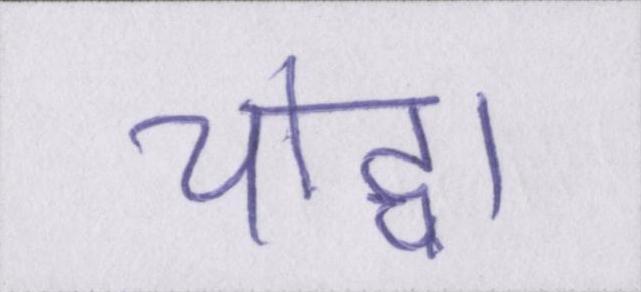 योद्धा